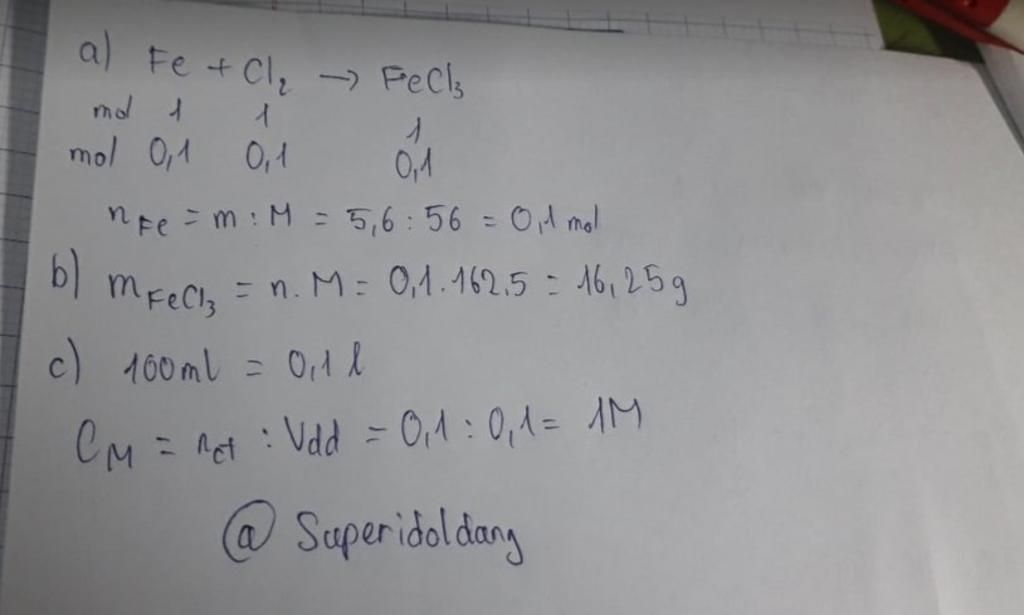 a) Fe + Cl₂ → FeCl₃
mol 1 1 1
mol 0,1 0,1 0,1
nFe = m : M = 5,6 : 56 = 0,1 mol
b) mFeCl₃ = n . M = 0,1 . 162,5 = 16,25g
c) 100ml = 0,1 l
CM = nct : Vdd = 0,1 : 0,1 = 1M
@ Superidoldang